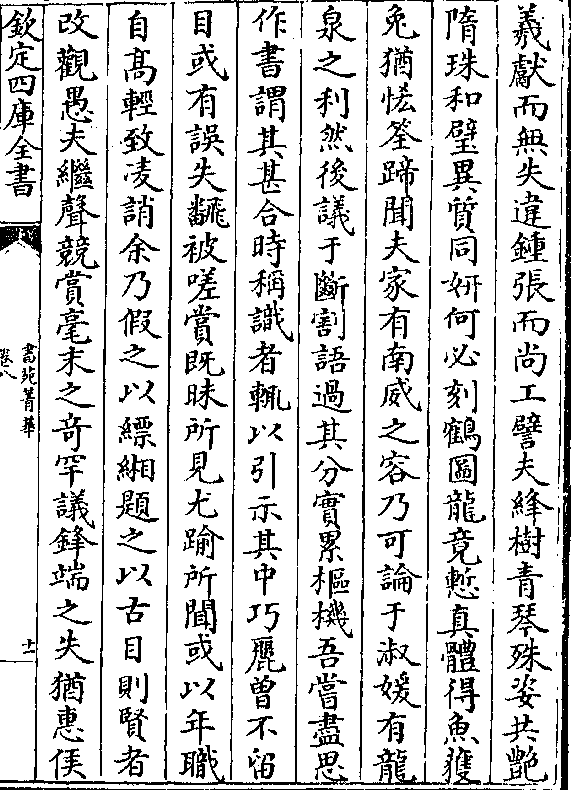 羲獻而無失違鍾張而尚工譬夫絳樹青琴殊姿共艷
隋珠和璧異質同妍何必刻鶴圖龍竟慙真體得魚獲
兔猶恡筌蹄聞夫家有南威之容乃可論于淑媛有龍
泉之利然後議于斷割語過其分實累樞機吾嘗盡思
作書謂其甚合時稱識者輒以引示其中巧麗曾不留
目或有誤失翻被嗟賞既昧所見尤踰所聞或以年職
自高輕致凌誚余乃假之以縹緗題之以古目則賢者
改觀愚夫繼聲競賞毫末之奇罕議鋒端之失猶惠侯
欽定四庫全書
書苑菁華
卷八
十一